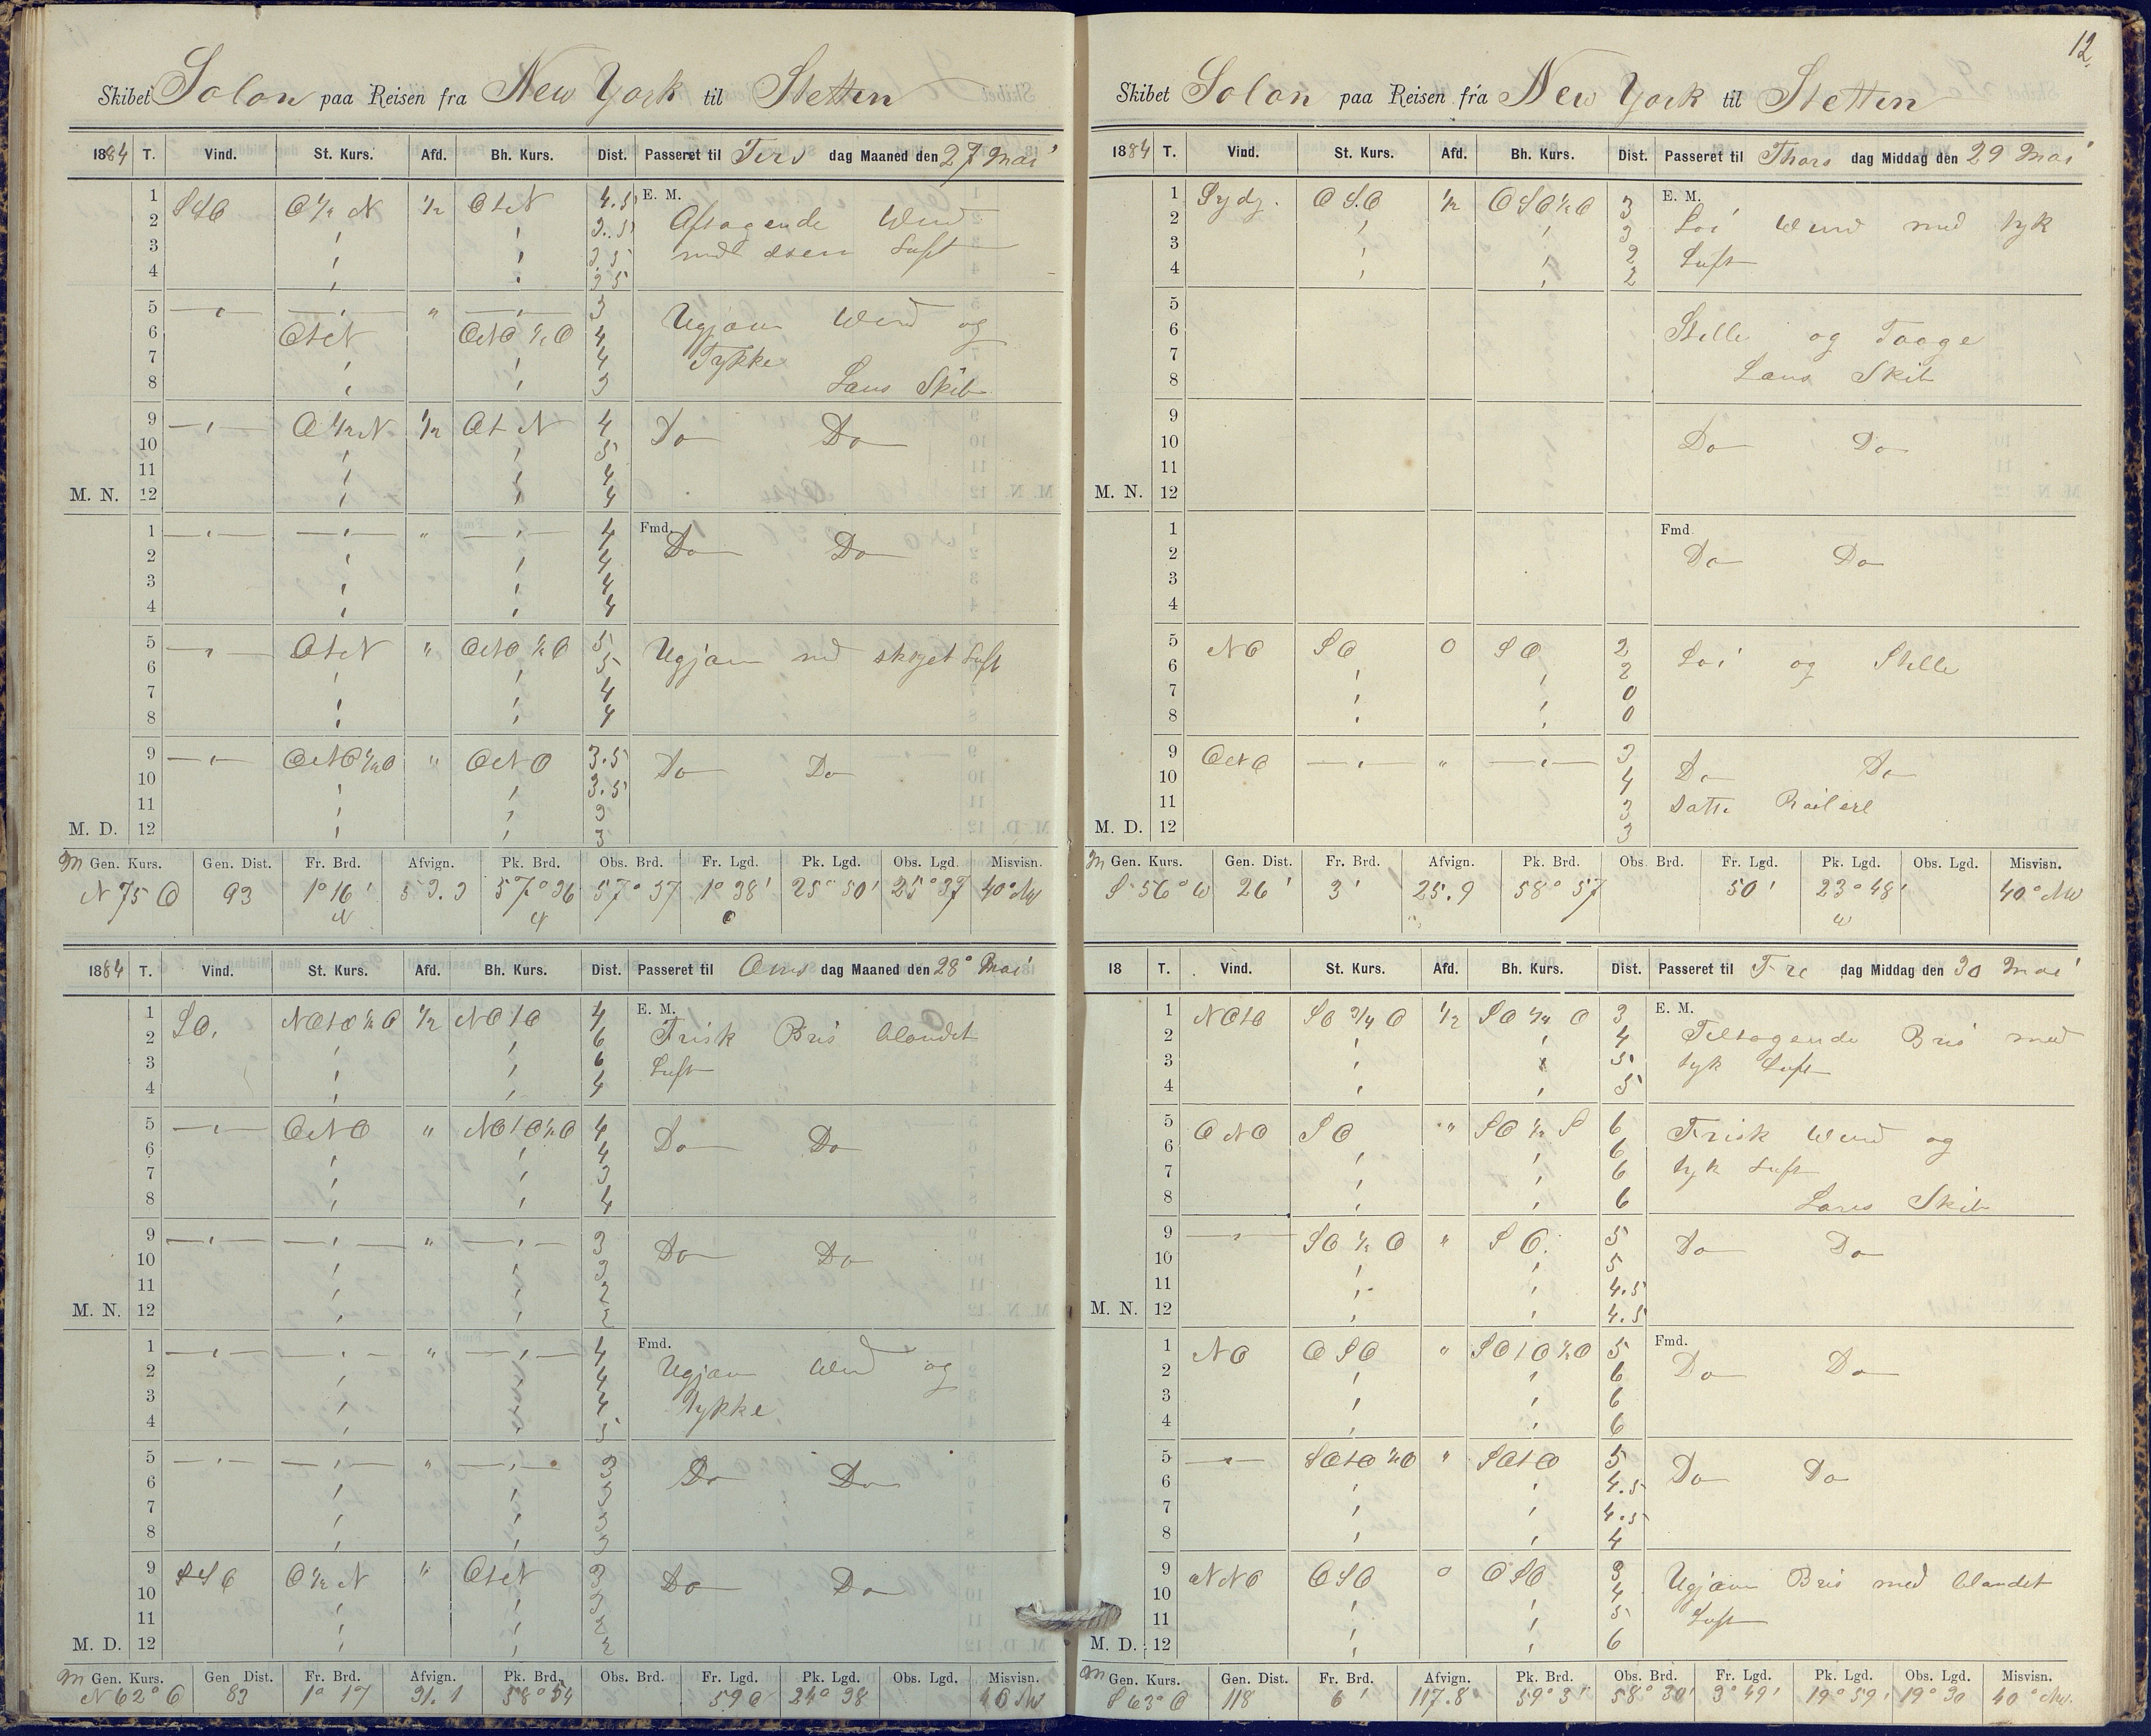 Skibet Solon paa Reisen fra New York til Stettin
1884 T. Vind. St. Kurs. Afd. Bh. Kurs. Dist. Passeret til Tirs dag Maaned den 27 Mai
1 SSO O ½ N ½ OtN 4.5 E. M.
2 3.5 Aftagende Wind
3 3.5 med disen Luft
4 3.5
5 " 3
6 OtN OtNO ½ O 4 Ugjævn Wind og
7 4 Tykke
8 3 Læns Skib
9 O ½ N ½ OtN 4 Do Do
10 5
11 4
M. N. 12 4
1 " 4 Fmd. Do Do
2 4
3 4
4 4
5 OtN " OtNO ½ O 5 Ugjævn med skyet Luft
6 5
7 4
8 4
9 OtNO ½ O " OtNO 3.5 Do Do
10 3.5
11 3
M. D. 12 3
M Gen. Kurs. Gen. Dist. Fr. Brd. Afvign. Pk. Brd. Obs. Brd. Fr. Lgd. Pk. Lgd. Obs. Lgd. Misvisn.
N 75 O 93 1° 16' 53.3 57° 36 57° 37 1° 38' 25° 50' 25° 37 40° NW
N N O
1884 T. Vind. St. Kurs. Afd. Bh. Kurs. Dist. Passeret til Ons dag Maaned den 28° Mai
1 SO. NOtO ½ O ½ NOtO 4 E. M.
2 6 Frisk Bris blandet
3 6 Luft
4 4
5 OtNO " NOtO ½ O 4
6 4 Do Do
7 3
8 4
9 " 3 Do Do
10 3
11 2
M. N. 12 2
1 " 4 Fmd.
2 4 Ugjævn Wind og
3 4 Tykke
4 5
5 " 3 Do Do
6 3
7 3
8 3
9 SSO O ½ N " OtN 3 Do Do
10 3
11 2
M. D. 12 2
M Gen. Kurs. Gen Dist. Fr. Brd. Afvign. Pk. Brd. Obs. Brd. Fr. Lgd. Pk. Lgd. Obs. Lgd. Misvisn.
N 62° O 83 1° 17 31.1 58° 54 59 O 24° 38 40 NW
12.
Skibet Solon paa Reisen fra New York til Stettin
1884 T. Vind. St. Kurs. Afd. Bh. Kurs. Dist. Passeret til Thors dag Middag den 29 Mai
1 Sydg. OSO ½ OSO ½ O 3 E. M.
2 3 Løi Wind med tyk
3 2 Luft
4 2
5
6 Stille og Taage
7
8 Læns Skib
9
10 Do Do
11
M. N. 12
1 Fmd.
2 Do Do
3
4
5 NO SO 0 SO 2
6 2 Løi og Stille
7 0
8 0
9 OtNO " 3
10 4 Do Do
11 3 Satte
M. D. 12 3
M Gen. Kurs. Gen. Dist. Fr. Brd. Afvign. Pk. Brd. Obs. Brd. Fr. Lgd. Pk. Lgd. Obs. Lgd. Misvisn.
S 56° W 26' 3' 25.9 58° 57 50' 23° 48' 40° NW
W
18 T. Vind. St. Kurs. Afd. Bh. Kurs. Dist. Passeret til Fre dag Middag den 30 Mai
1 NOtO SO ¾ O ½ SO ¼ O 3 E. M.
2 4 Tiltagende Bris med
3 5 tyk Luft
4 5
5 ONO SO " SO ½ S 6 Frisk Wind og
6 6
7 6 tyk Luft
8 6 Læns Skib
9 SO ½ O " SO. 5 Do Do
10 5
11 4.5
M. N. 12 4.5
1 NO OSO " SOtO ½ O 5 Fmd.
2 6 Do Do
3 6
4 6
5 SOtO ½ O " SOtO 5 Do Do
6 4.5
7 4.5
8 4
9 NNO OSO 0 OSO 3 Ugjævn Bris med blandet
10 4
11 5 Luft
M. D. 12 6
M Gen. Kurs. Gen. Dist. Fr. Brd. Afvign. Pk. Brd. Obs. Brd. Fr. Lgd. Pk. Lgd. Obs. Lgd. Misvisn.
S 63° O 118 6' 117.8 59° 3' 58° 30' 3° 49' 19° 59' 19° 30 40° NW.